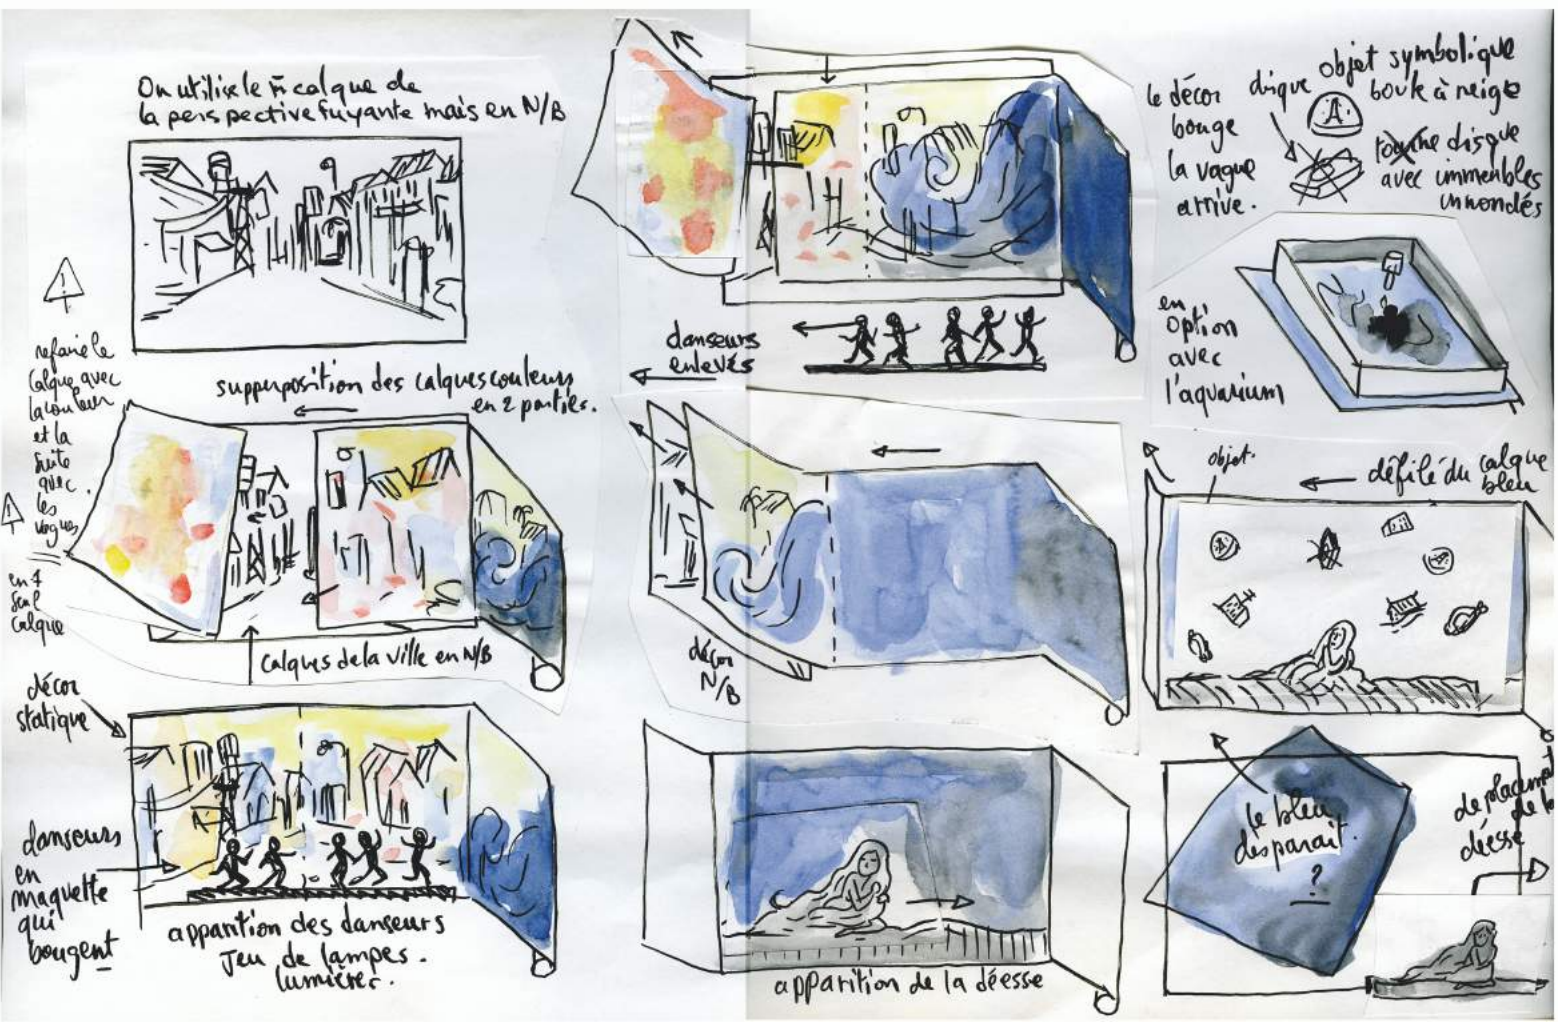 On utilise le m̄ calque de
la perspective fuyante mais en N/B
refaire le
calque avec
la couleur
et la
suite
avec
les
vagues
en 1
seul
calque
suppurposition des calques couleurs
en 2 parties.
calques de la ville en N/B
décor
statique
danseurs
en
maquette
qui
bougent
apparition des danseurs
Jeu de lampes.
lumières.
danseurs
enlevés
décor
N/B
apparition de la déesse
le décor
bouge
la vague
arrive.
disque
objet symbolique
boule à neige
A
disque
avec immeubles
innondés
en
option
avec
l'aquarium
objet.
défilé du calque
bleu
le bleu
disparait.
?
déplacement
de la
déesse